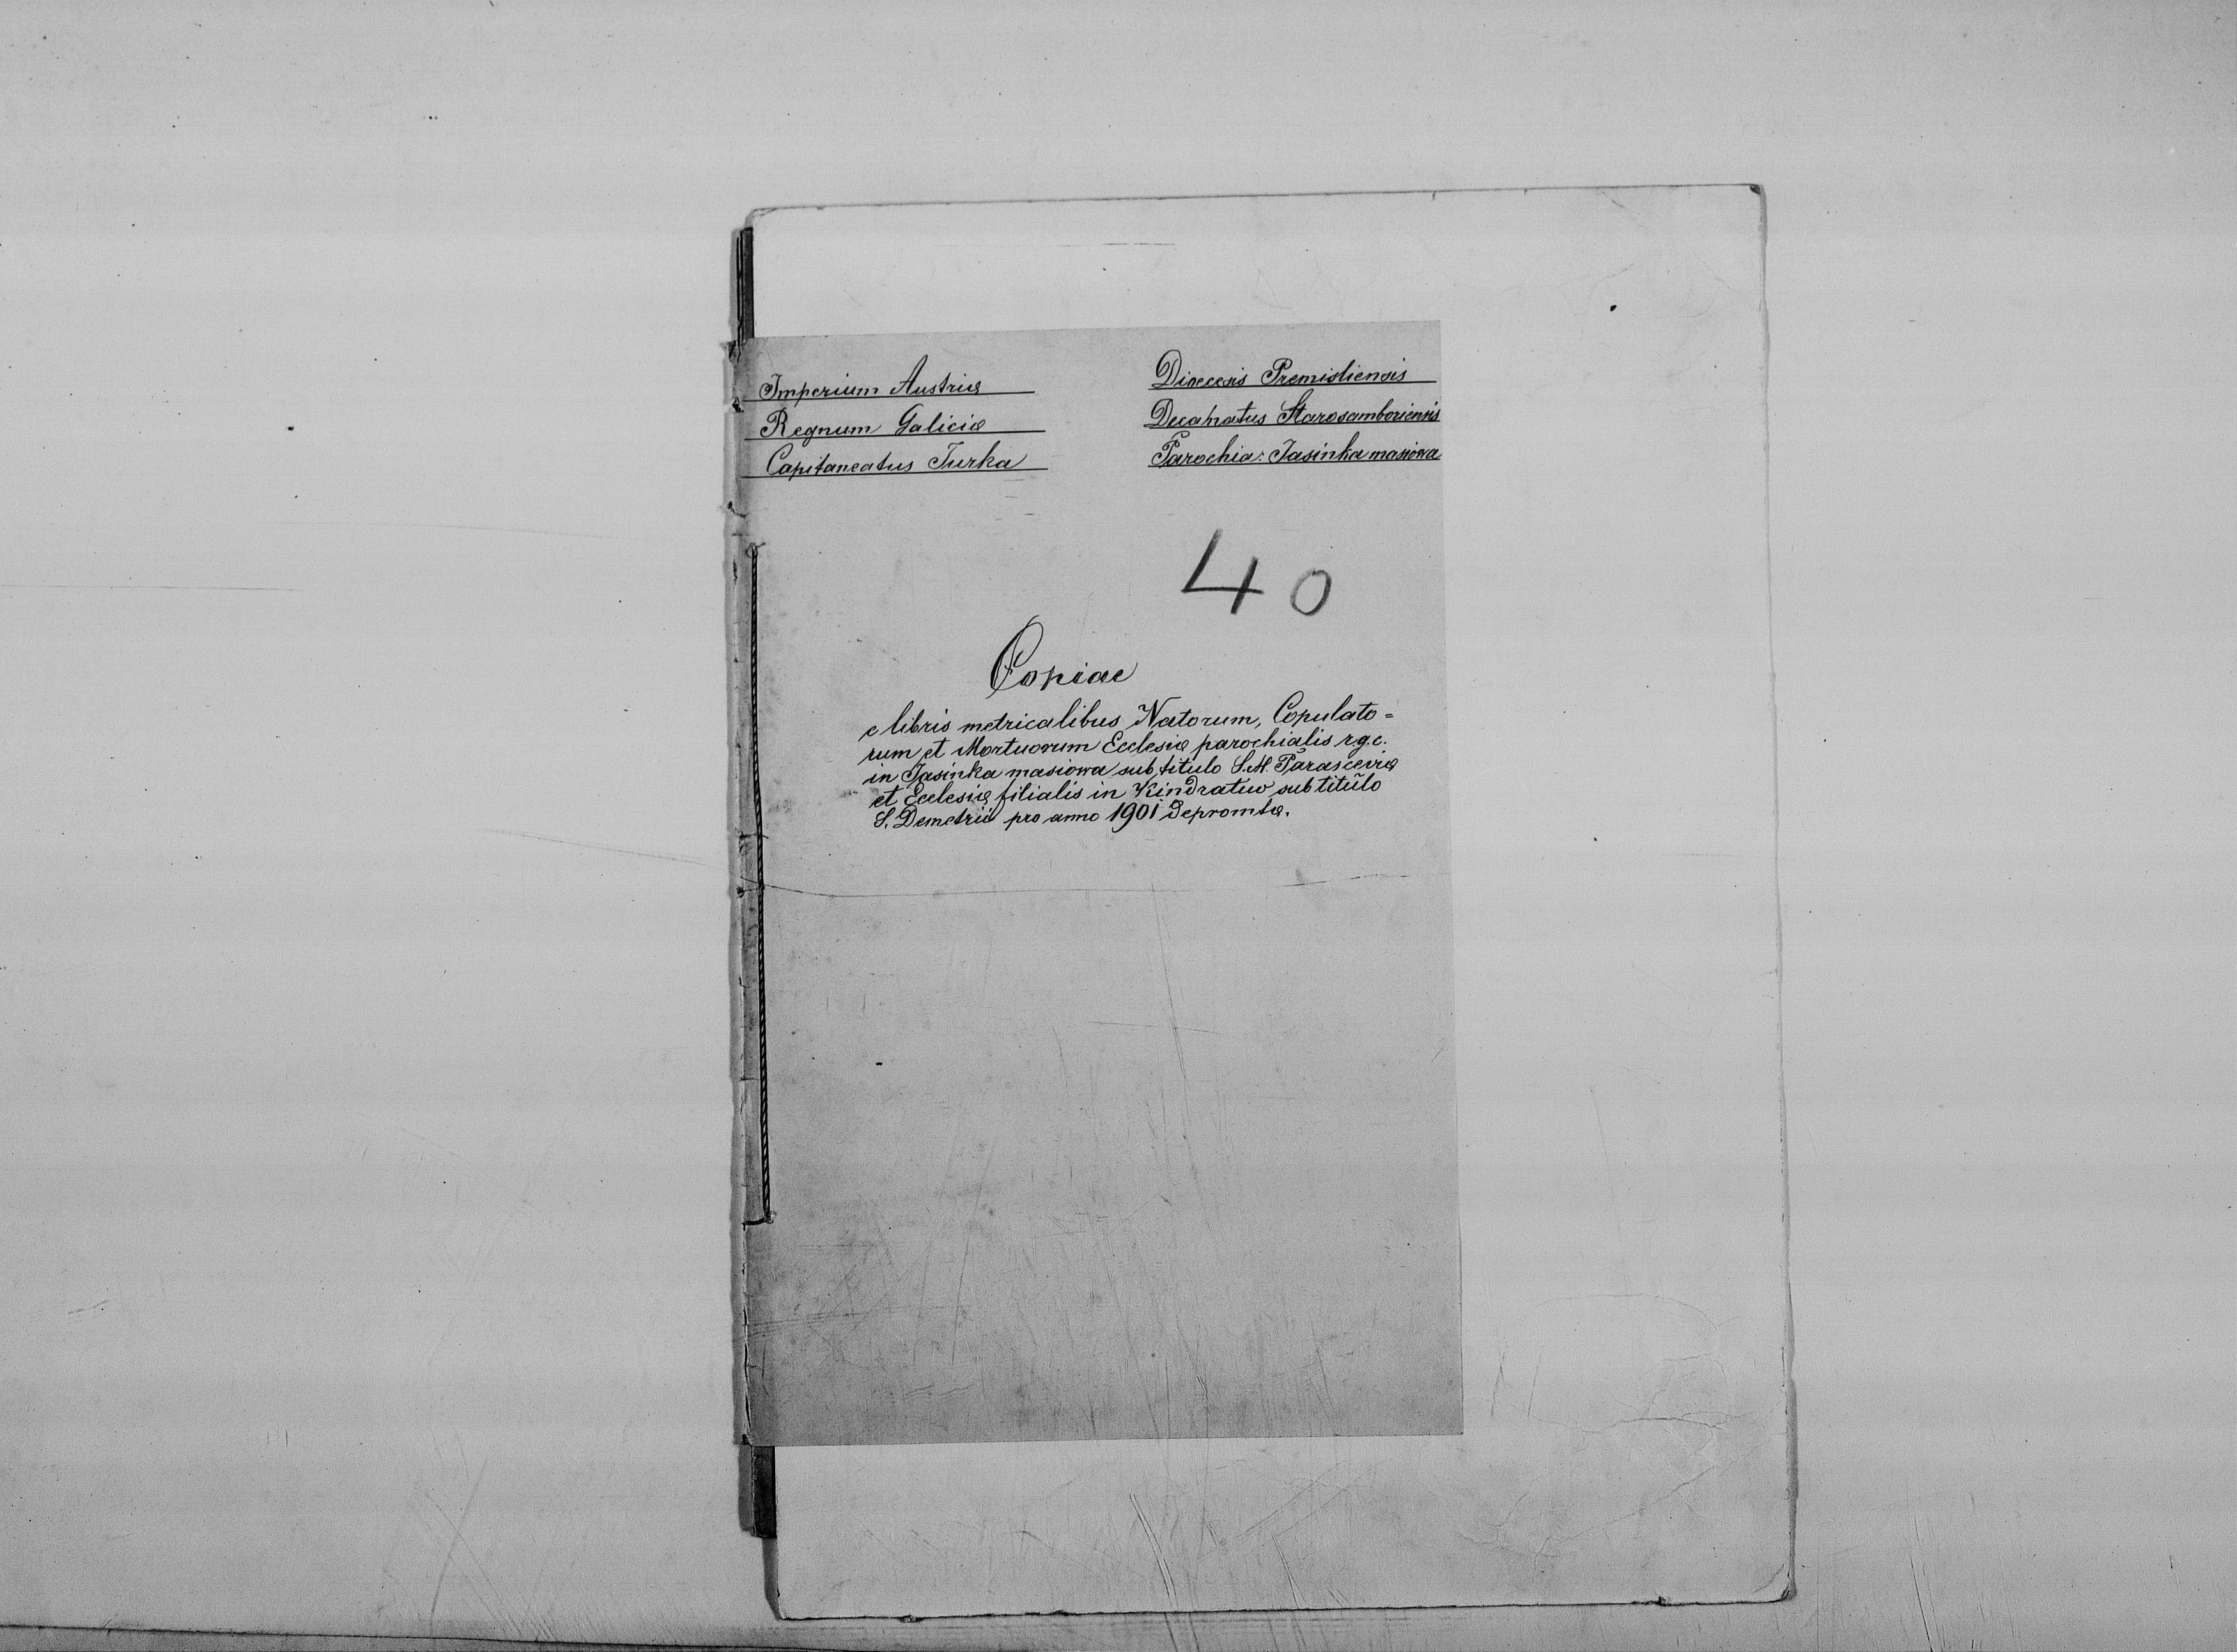 Imperium Austriæ
Regnum Galiciæ
Capitaneatus Turka
Dioecesis Premisliensis
Decanatus Starosamboriensis
Parochia: Jasinka masiowa
40
Copiae
e libris metricalibus Natorum, Copulato=
rum et Mortuorum Ecclesiæ parochialis r.g.c.
in Jasinka masiowa sub titulo S.M. Parasceviæ
et Ecclesiæ filialis in Kindratuw sub titulo
S. Demetrii pro anno 1901 depromtæ.